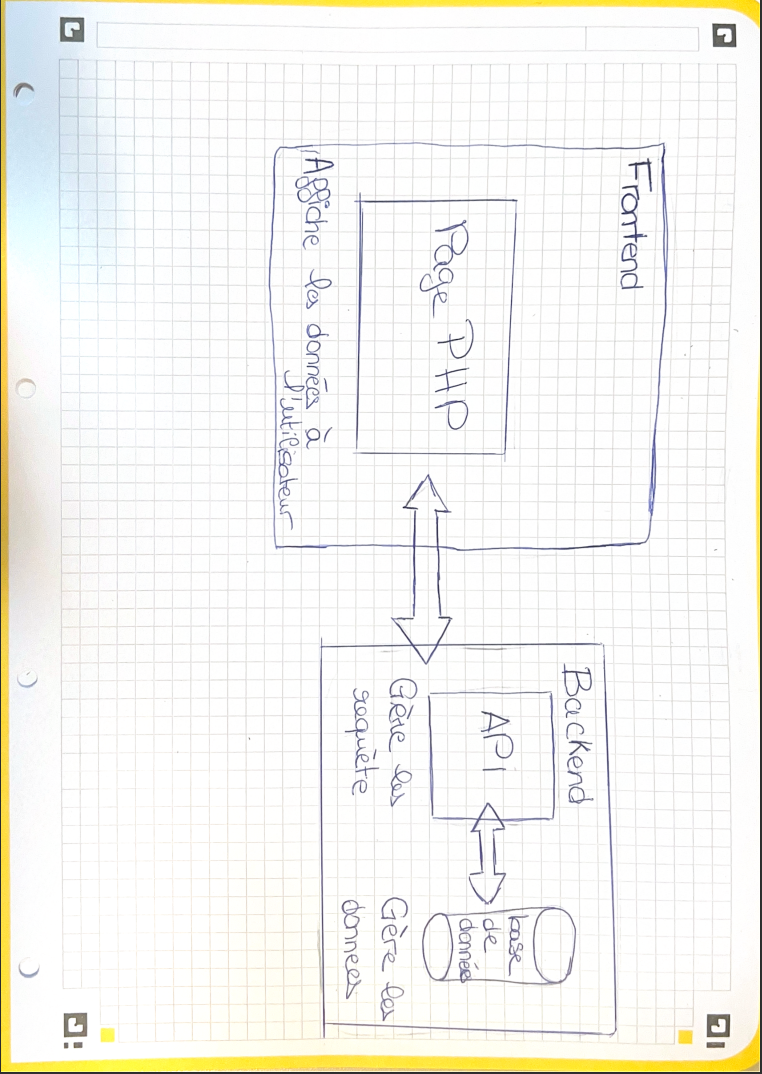 Frontend
Page PHP
Affiche les données à
l'utilisateur
Backend
API
Gère les
requête
base
de
données
Gère les
données